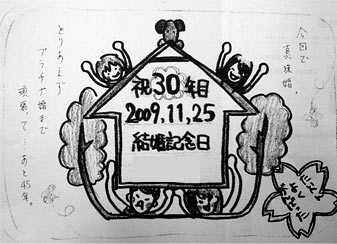 今回で
真珠婚。
祝30年目
2009,11,25
結婚記念日
とりあえず
プラチナ婚まで
頑張って…あと45年。